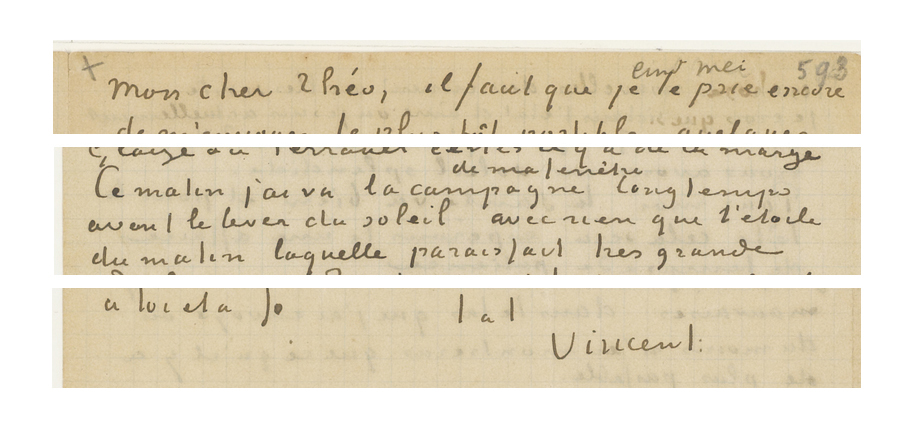 eind mei 593
Mon cher Théo, il faut que je te prie encore
de m'envoyer le plus tôt possible quelques
certes il y a de la marge
de ma fenêtre
Ce matin j'ai vu la campagne longtemps
avant le lever du soleil avec rien que l'étoile
du matin laquelle paraissait très grande
à toi et à Jo
t. à t.
Vincent.